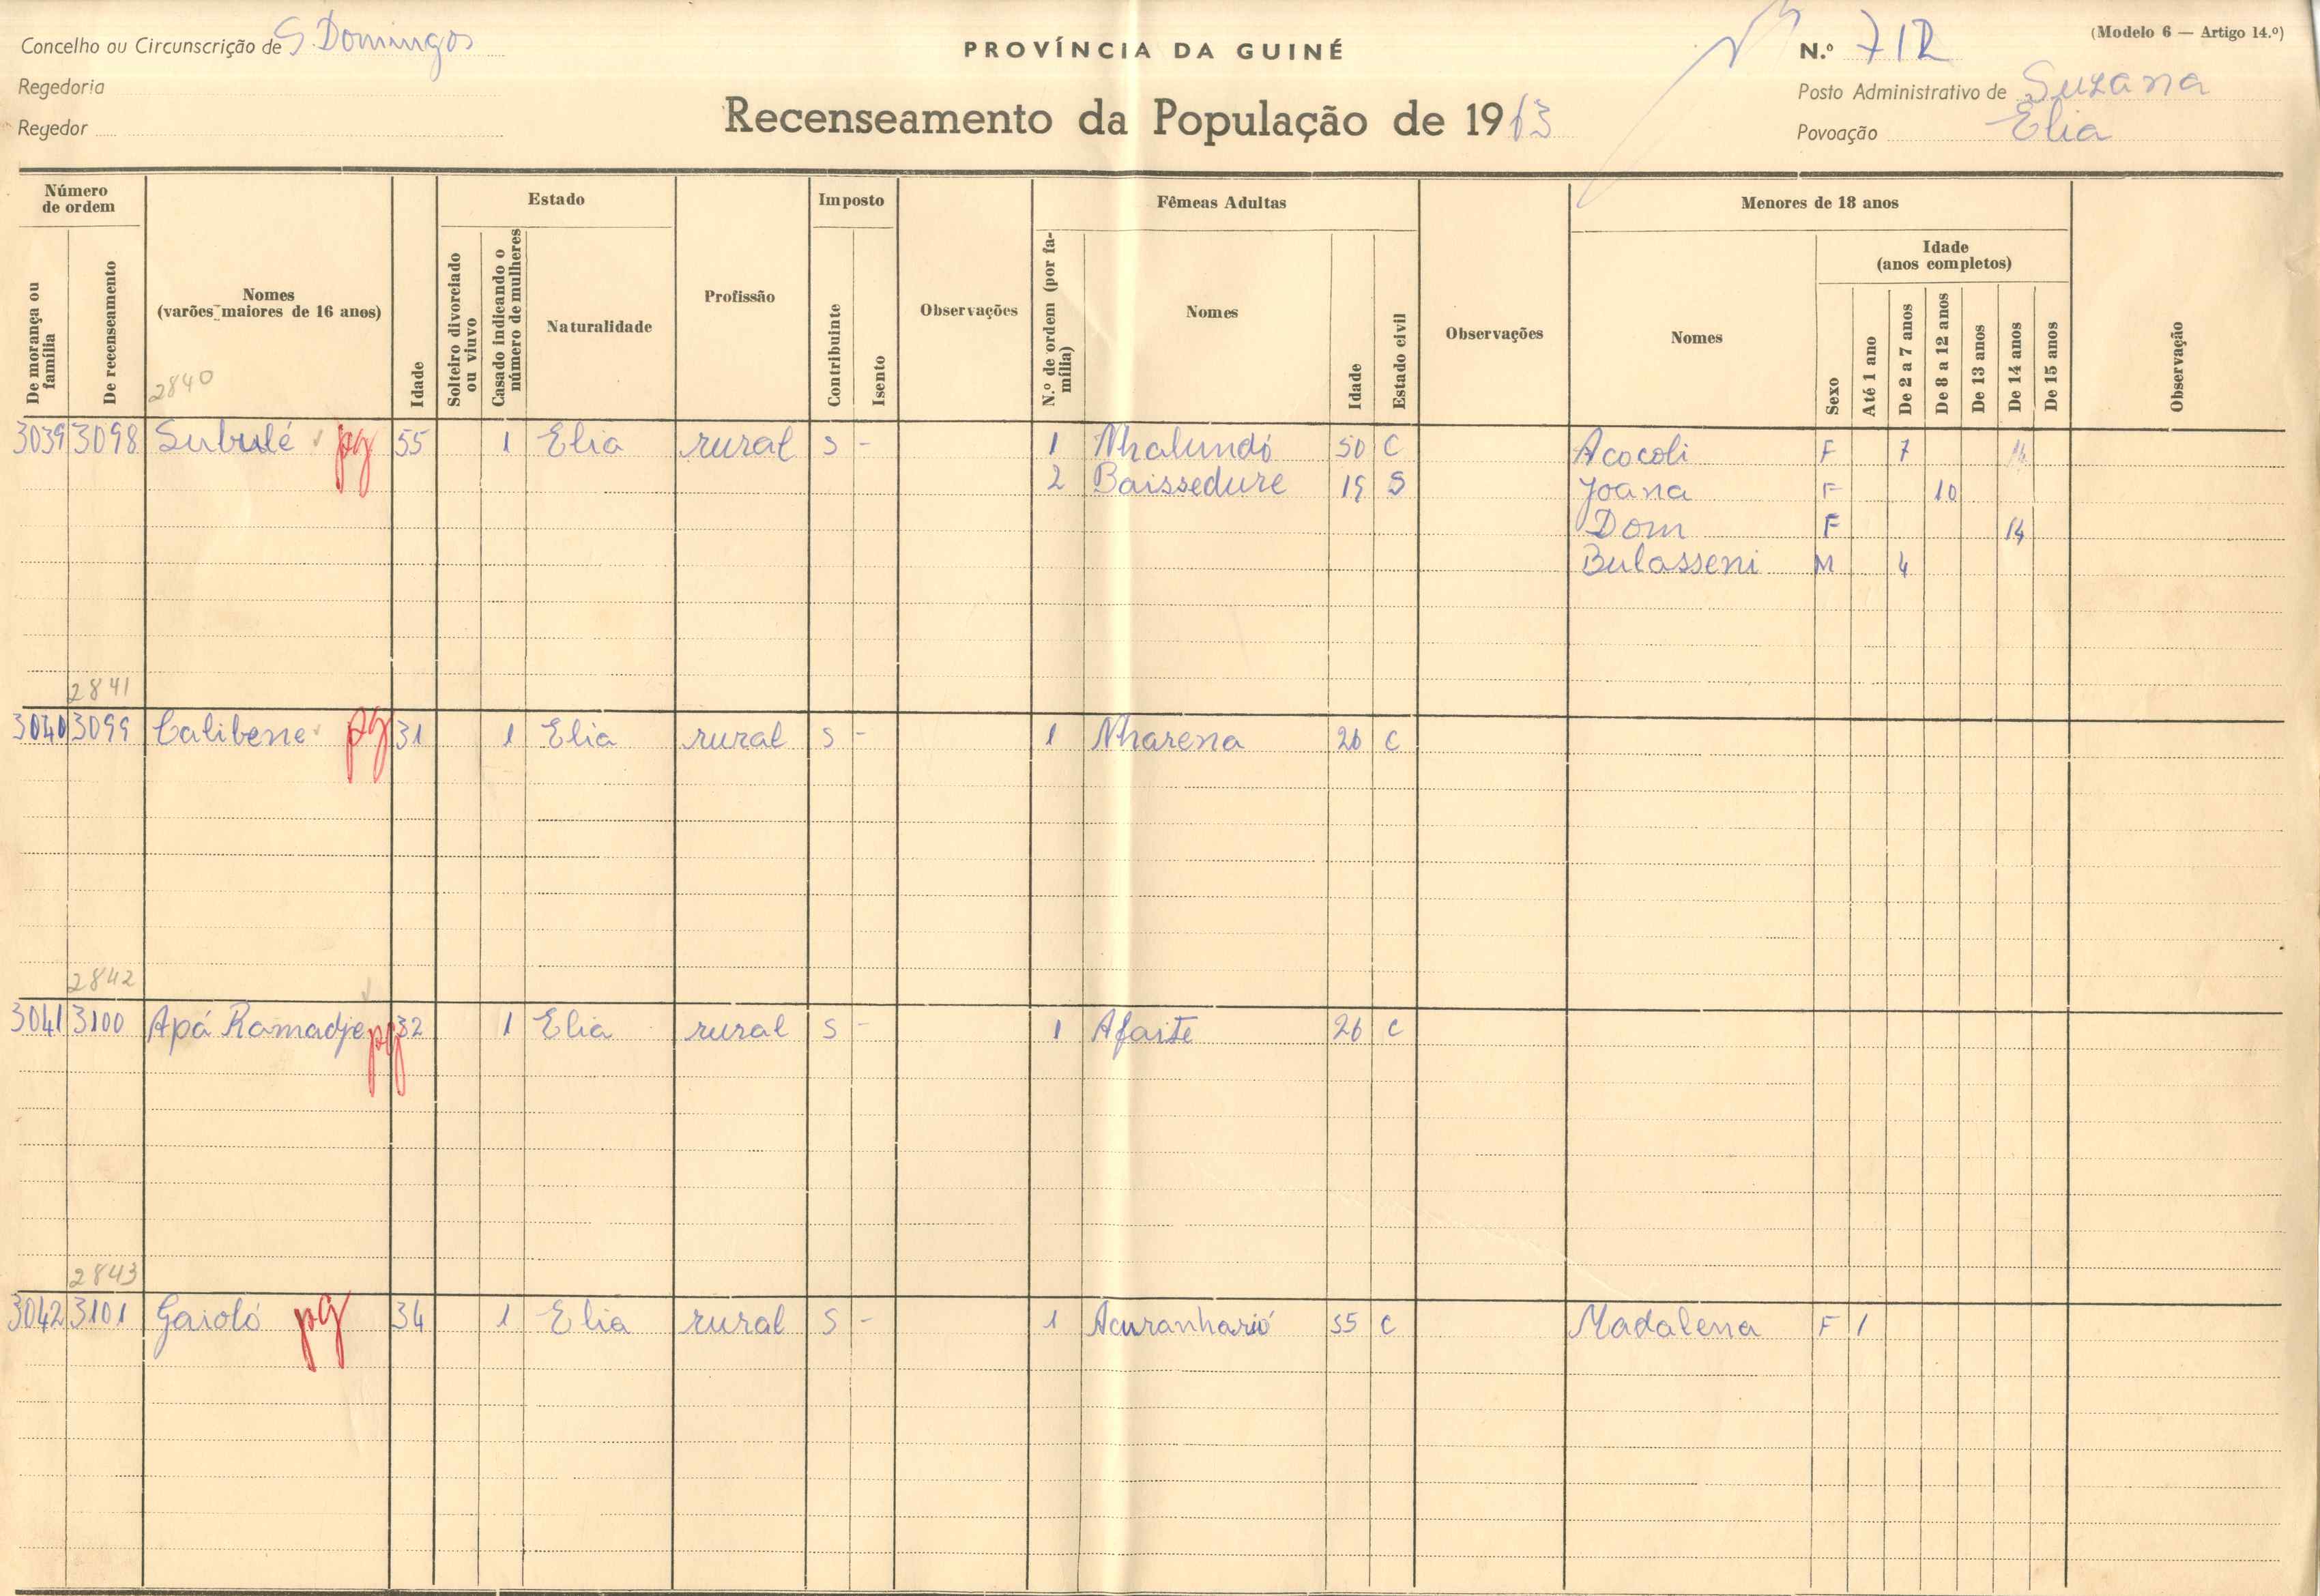 Concelho ou Circunscrição de S. Domingos
Regedoria
Regedor
PROVÍNCIA DA GUINÉ
Recenseamento da População de 1963
(Modelo 6 — Artigo 14.º)
N.º 712
Posto Administrativo de Suzana
Povoação Elia
Número de ordem
De morança ou família
De recenseamento
Nomes (varões maiores de 16 anos)
Idade
Estado
Solteiro divorciado ou viuvo
Casado indicando o número de mulheres
Naturalidade
Profissão
Imposto
Contribuinte
Isento
Observações
Fêmeas Adultas
N.º de ordem (por família)
Nomes
Idade
Estado civil
Observações
Menores de 18 anos
Nomes
Sexo
Idade (anos completos)
Até 1 ano
De 2 a 7 anos
De 8 a 12 anos
De 13 anos
De 14 anos
De 15 anos
Observação
2840
3039 3098 Subulé pg 55 1 Elia rural S - 1 Nhalundó 50 C Acocoli F 7
2 Baissedure 19 S Joana F 10
Dom F 14
Bulasseni M 4
2841
3040 3099 Calibene pg 31 1 Elia rural S - 1 Nharena 26 C
2842
3041 3100 Apá Ramadje pg 32 1 Elia rural S - 1 Afaite 26 C
2843
3042 3101 Gaioló pg 34 1 Elia rural S - 1 Acuranharió 55 C Madalena F 1